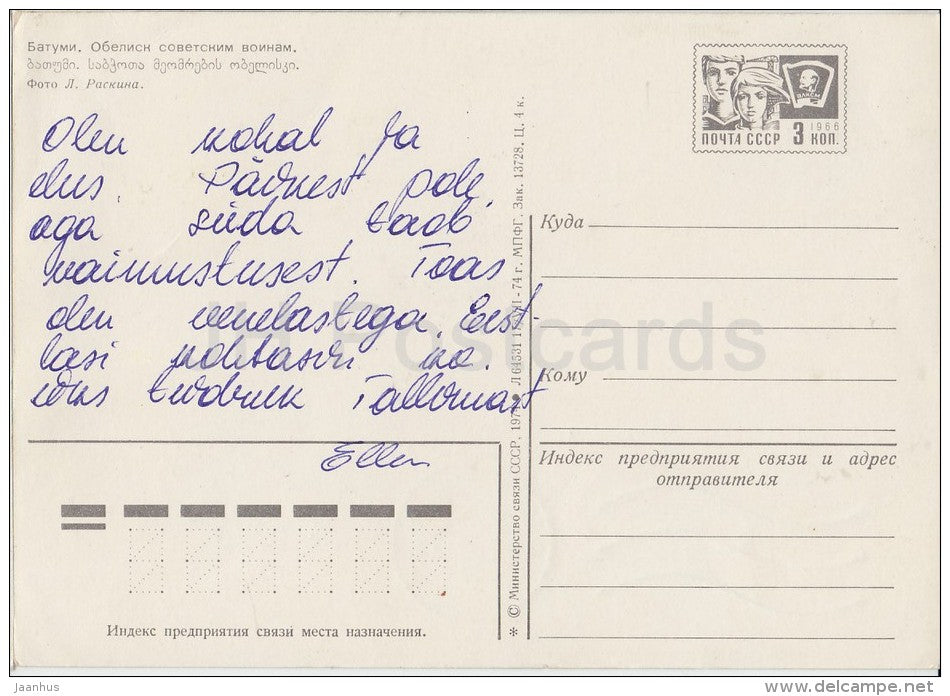 Батуми. Обелиск советским воинам.
ბათუმი. საბჭოთა მეომრების ობელისკი.
Фото Л. Раскина.
ПОЧТА СССР 3 КОП.
1966
ВЛКСМ
Olen kohal ja
elus. Päikest pole,
aga süda taob
vaimustusest. Toas
olen venelastega. Eest-
lasi kohtasin ka.
üks tüdruk Tallinnast
Ellen
Куда
Кому
Индекс предприятия связи и адрес
отправителя
Индекс предприятия связи места назначения.
* © Министерство связи СССР, Л 64531 74 г. МПФГ. Зак. 13728. Ц. 4 к.
Postcards
jaanhus
www.delcampe.net